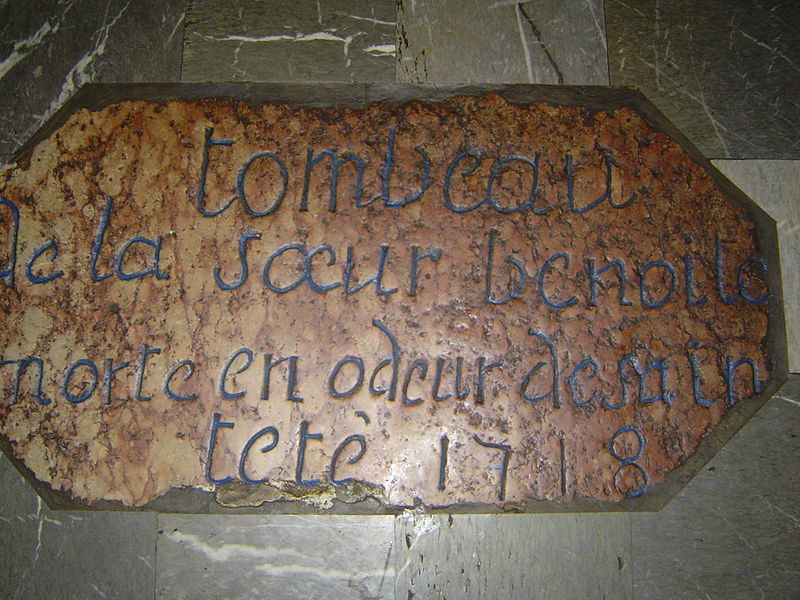 tombeau
de la sœur benoite
morte en odeur de sain
tetè 1718